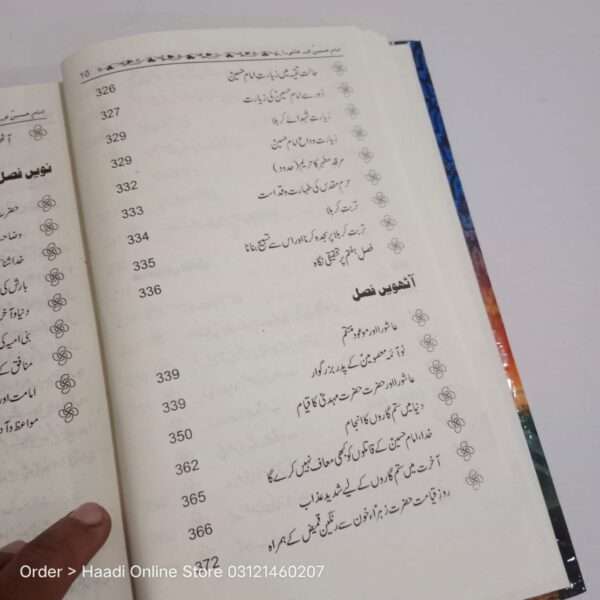 10
امام حسینؑ
حالت تقیہ میں زیارت امام حسینؑ 326
دور سے امام حسینؑ کی زیارت 327
زیارت شہدائے کربلا 329
زیارت وداع امام حسینؑ 329
مرقد مطہر کا حریم (حدود) 332
حرم مقدس کی طہارت و قداست 333
تربت کربلا 334
تربت کربلا پر سجدہ کرنا اور اس سے تسبیح بنانا 335
فصل ہفتم پر تحقیقی نگاہ 336
آٹھویں فصل
عاشورا اور موعود منتقم 339
نو آئمہ معصومینؑ کے پدر بزرگوار 339
عاشورا اور حضرت حضرت مہدیؑ کا قیام 350
دنیا میں ستم گاروں کا انجام 362
خدا، امام حسینؑ کے قاتلوں کو کبھی معاف نہیں کرے گا 365
آخرت میں ستم گاروں کے لیے شدید عذاب 366
روز قیامت حضرت زہراؑ خون سے رنگین قمیض کے ہمراہ 372
امام حسینؑ
نویں فصل
حضرت
خدا شنا
بارش کی
دنیا و آخر
بنی امیہ کی
منافق کے
امامت اور
مواعظ و آد
Order > Haadi Online Store 03121460207